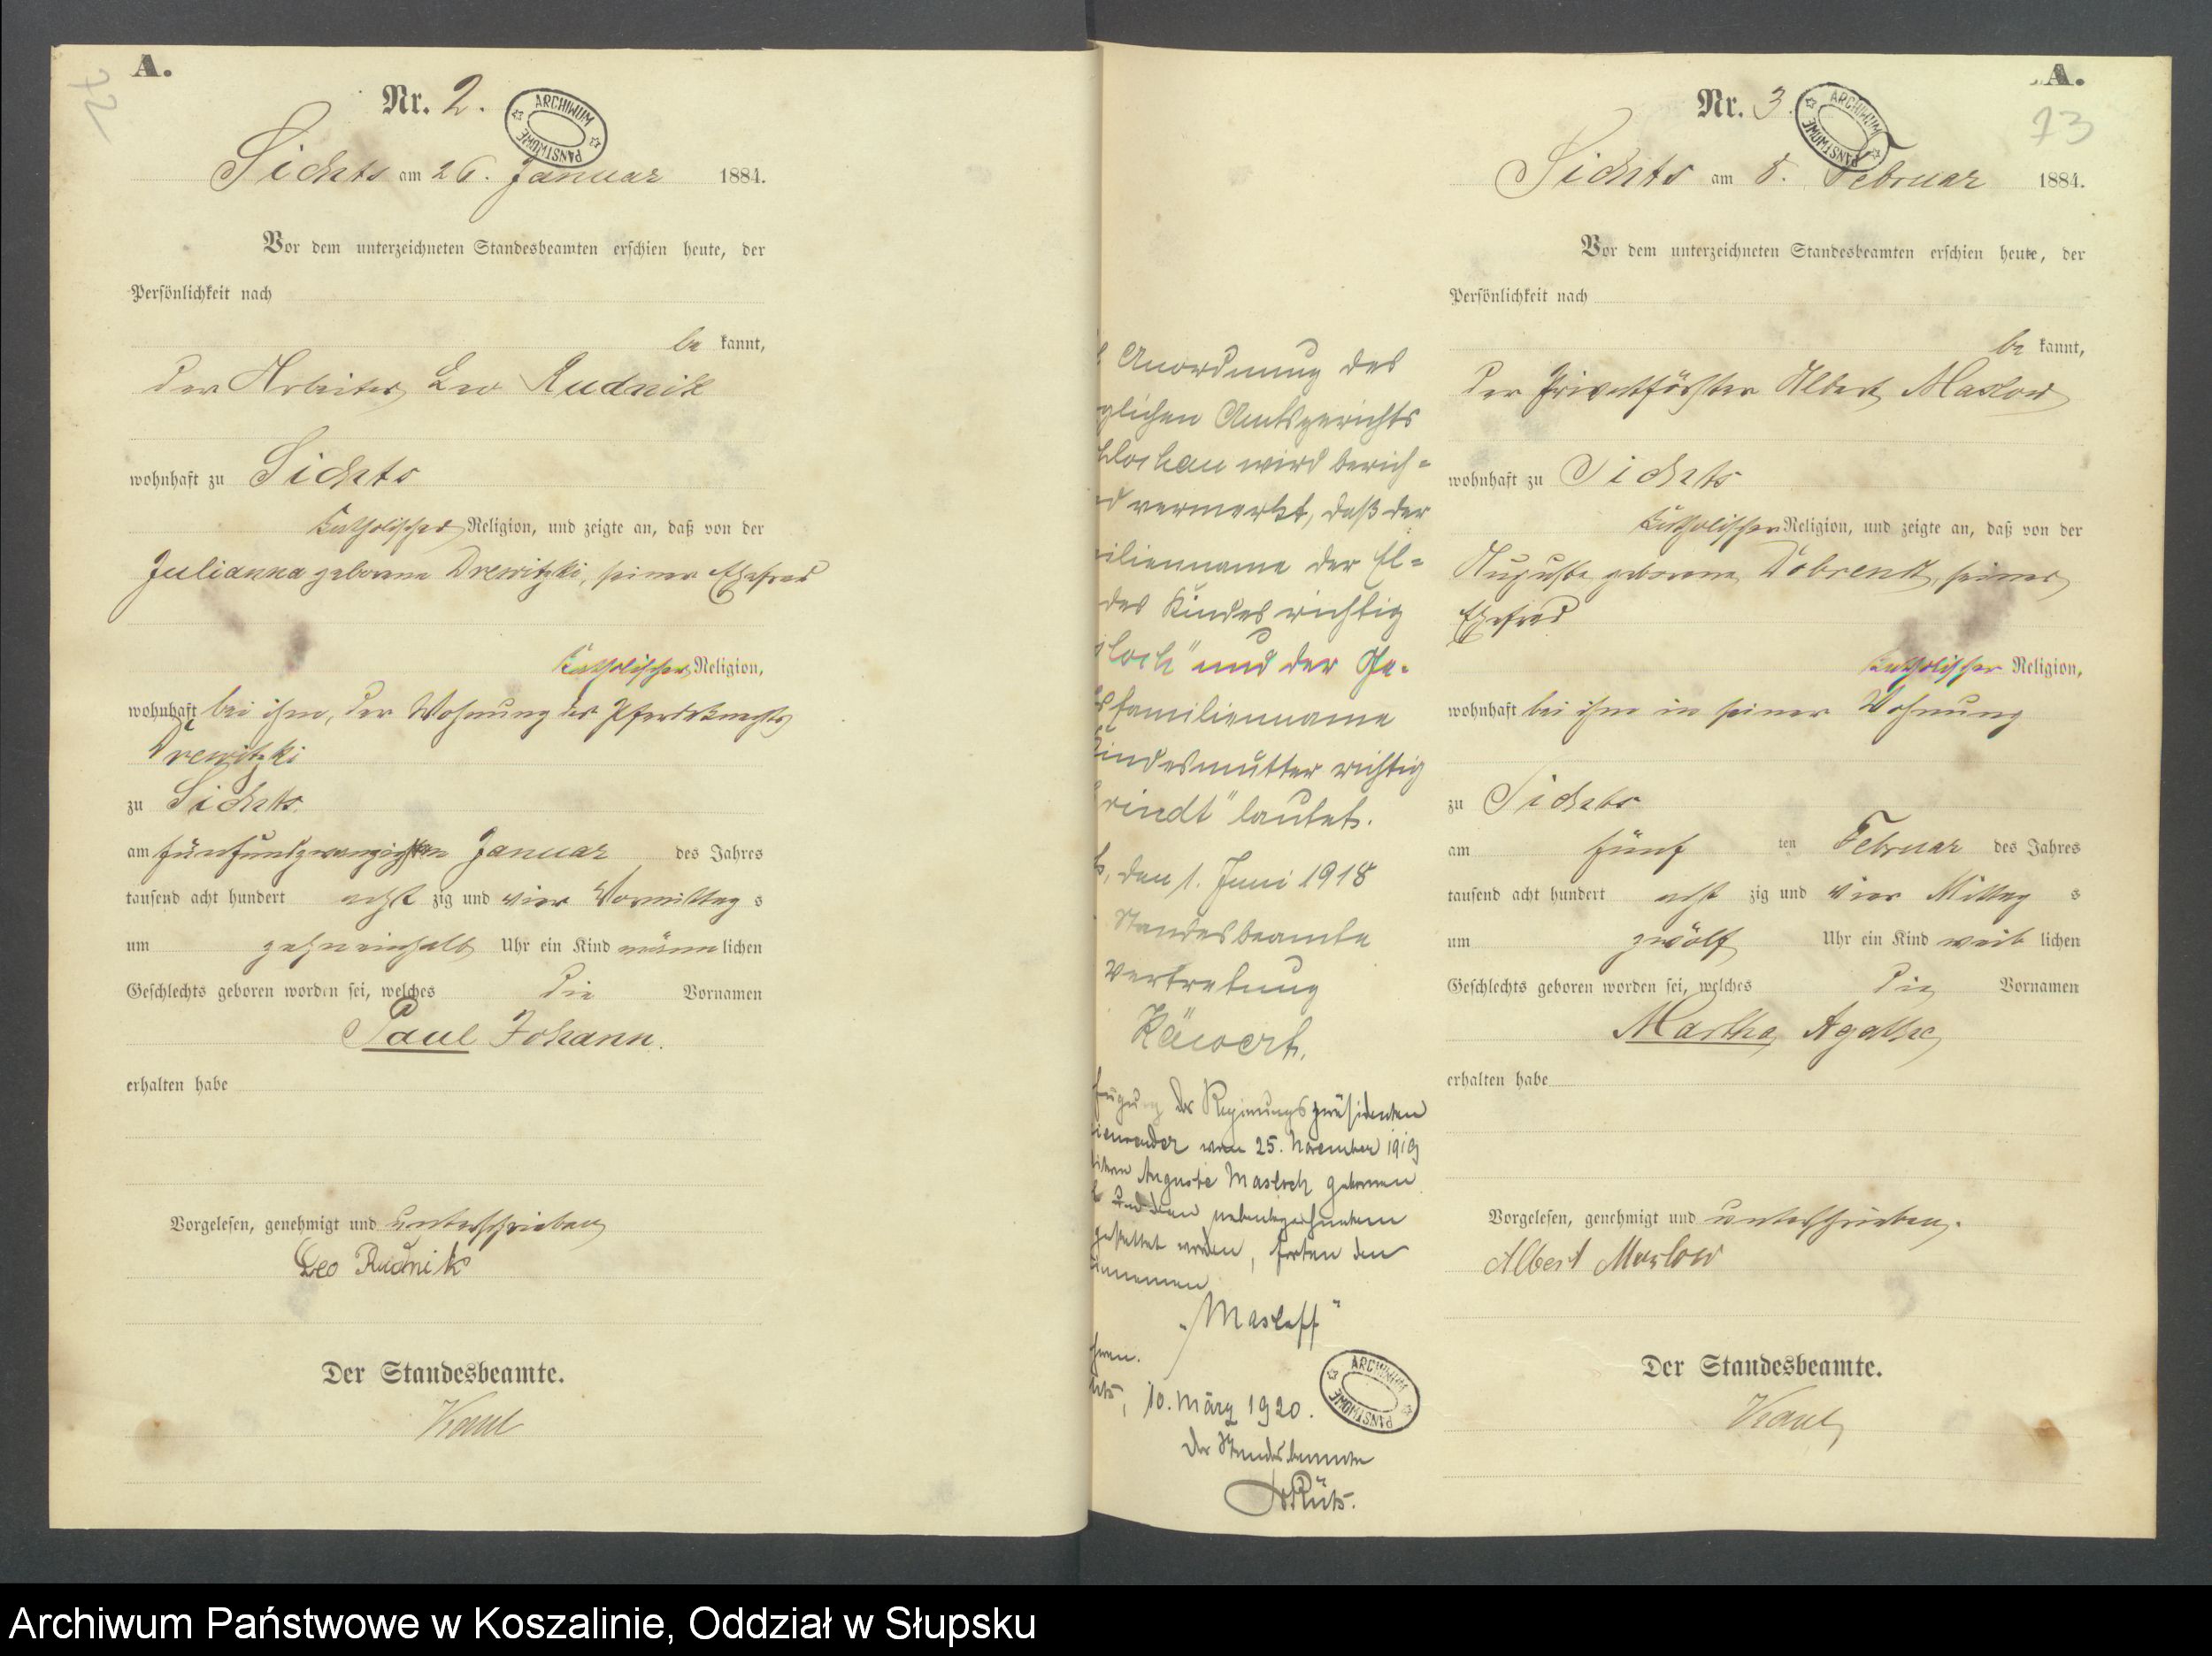 A.
72
Nr. 2.
ARCHIWUM PAŃSTWOWE
Sichts am 26. Januar 1884.
Vor dem unterzeichneten Standesbeamten erschien heute, der
Persönlichkeit nach
be kannt,
der Arbeiter Leo Rudnik
wohnhaft zu Sichts
katholischer Religion, und zeigte an, daß von der
Julianna geborene Drewitzki, seiner Ehefrau
katholischer Religion,
wohnhaft bei ihm, der Wohnung des Pferdeknechts
Drewitzki
zu Sichts
am fünfundzwanzigsten Januar des Jahres
tausend acht hundert acht zig und vier Vormittag s
um zehneinhalb Uhr ein Kind männ lichen
Geschlechts geboren worden sei, welches die Vornamen
Paul Johann.
erhalten habe
Vorgelesen, genehmigt und unterschrieben
Leo Rudnik
Der Standesbeamte.
Anordnung des
glichen Amtsgerichts
wird berich=
d vermerkt, daß der
ilienname der El=
des Kindes richtig
loch" und der Ge-
familienname
Kindesmutter richtig
rindt" lautet.
den 1. Juni 1918
Standesbeamte
Vertretung
fügung des Regierungspräsidenten
ienwerder vom 25. November 1919
Auguste Masloch geborenen
gestattet worden, fortan den
"Masloff"
10. März 1920.
Der Standesbeamte
ARCHIWUM PAŃSTWOWE
A.
73
Nr. 3.
ARCHIWUM PAŃSTWOWE
Sichts am 8. Februar 1884.
Vor dem unterzeichneten Standesbeamten erschien heute, der
Persönlichkeit nach
be kannt,
der Privatförster Albert Maslow
wohnhaft zu Sichts
katholischer Religion, und zeigte an, daß von der
Auguste geborene Dobrendt, seiner
Ehefrau
katholischer Religion,
wohnhaft bei ihm in seiner Wohnung
zu Sichts
am fünf ten Februar des Jahres
tausend acht hundert acht zig und vier Mittag s
um zwölf Uhr ein Kind weib lichen
Geschlechts geboren worden sei, welches die Vornamen
Martha Agathe
erhalten habe
Vorgelesen, genehmigt und unterschrieben.
Albert Maslow
Der Standesbeamte.
Archiwum Państwowe w Koszalinie, Oddział w Słupsku